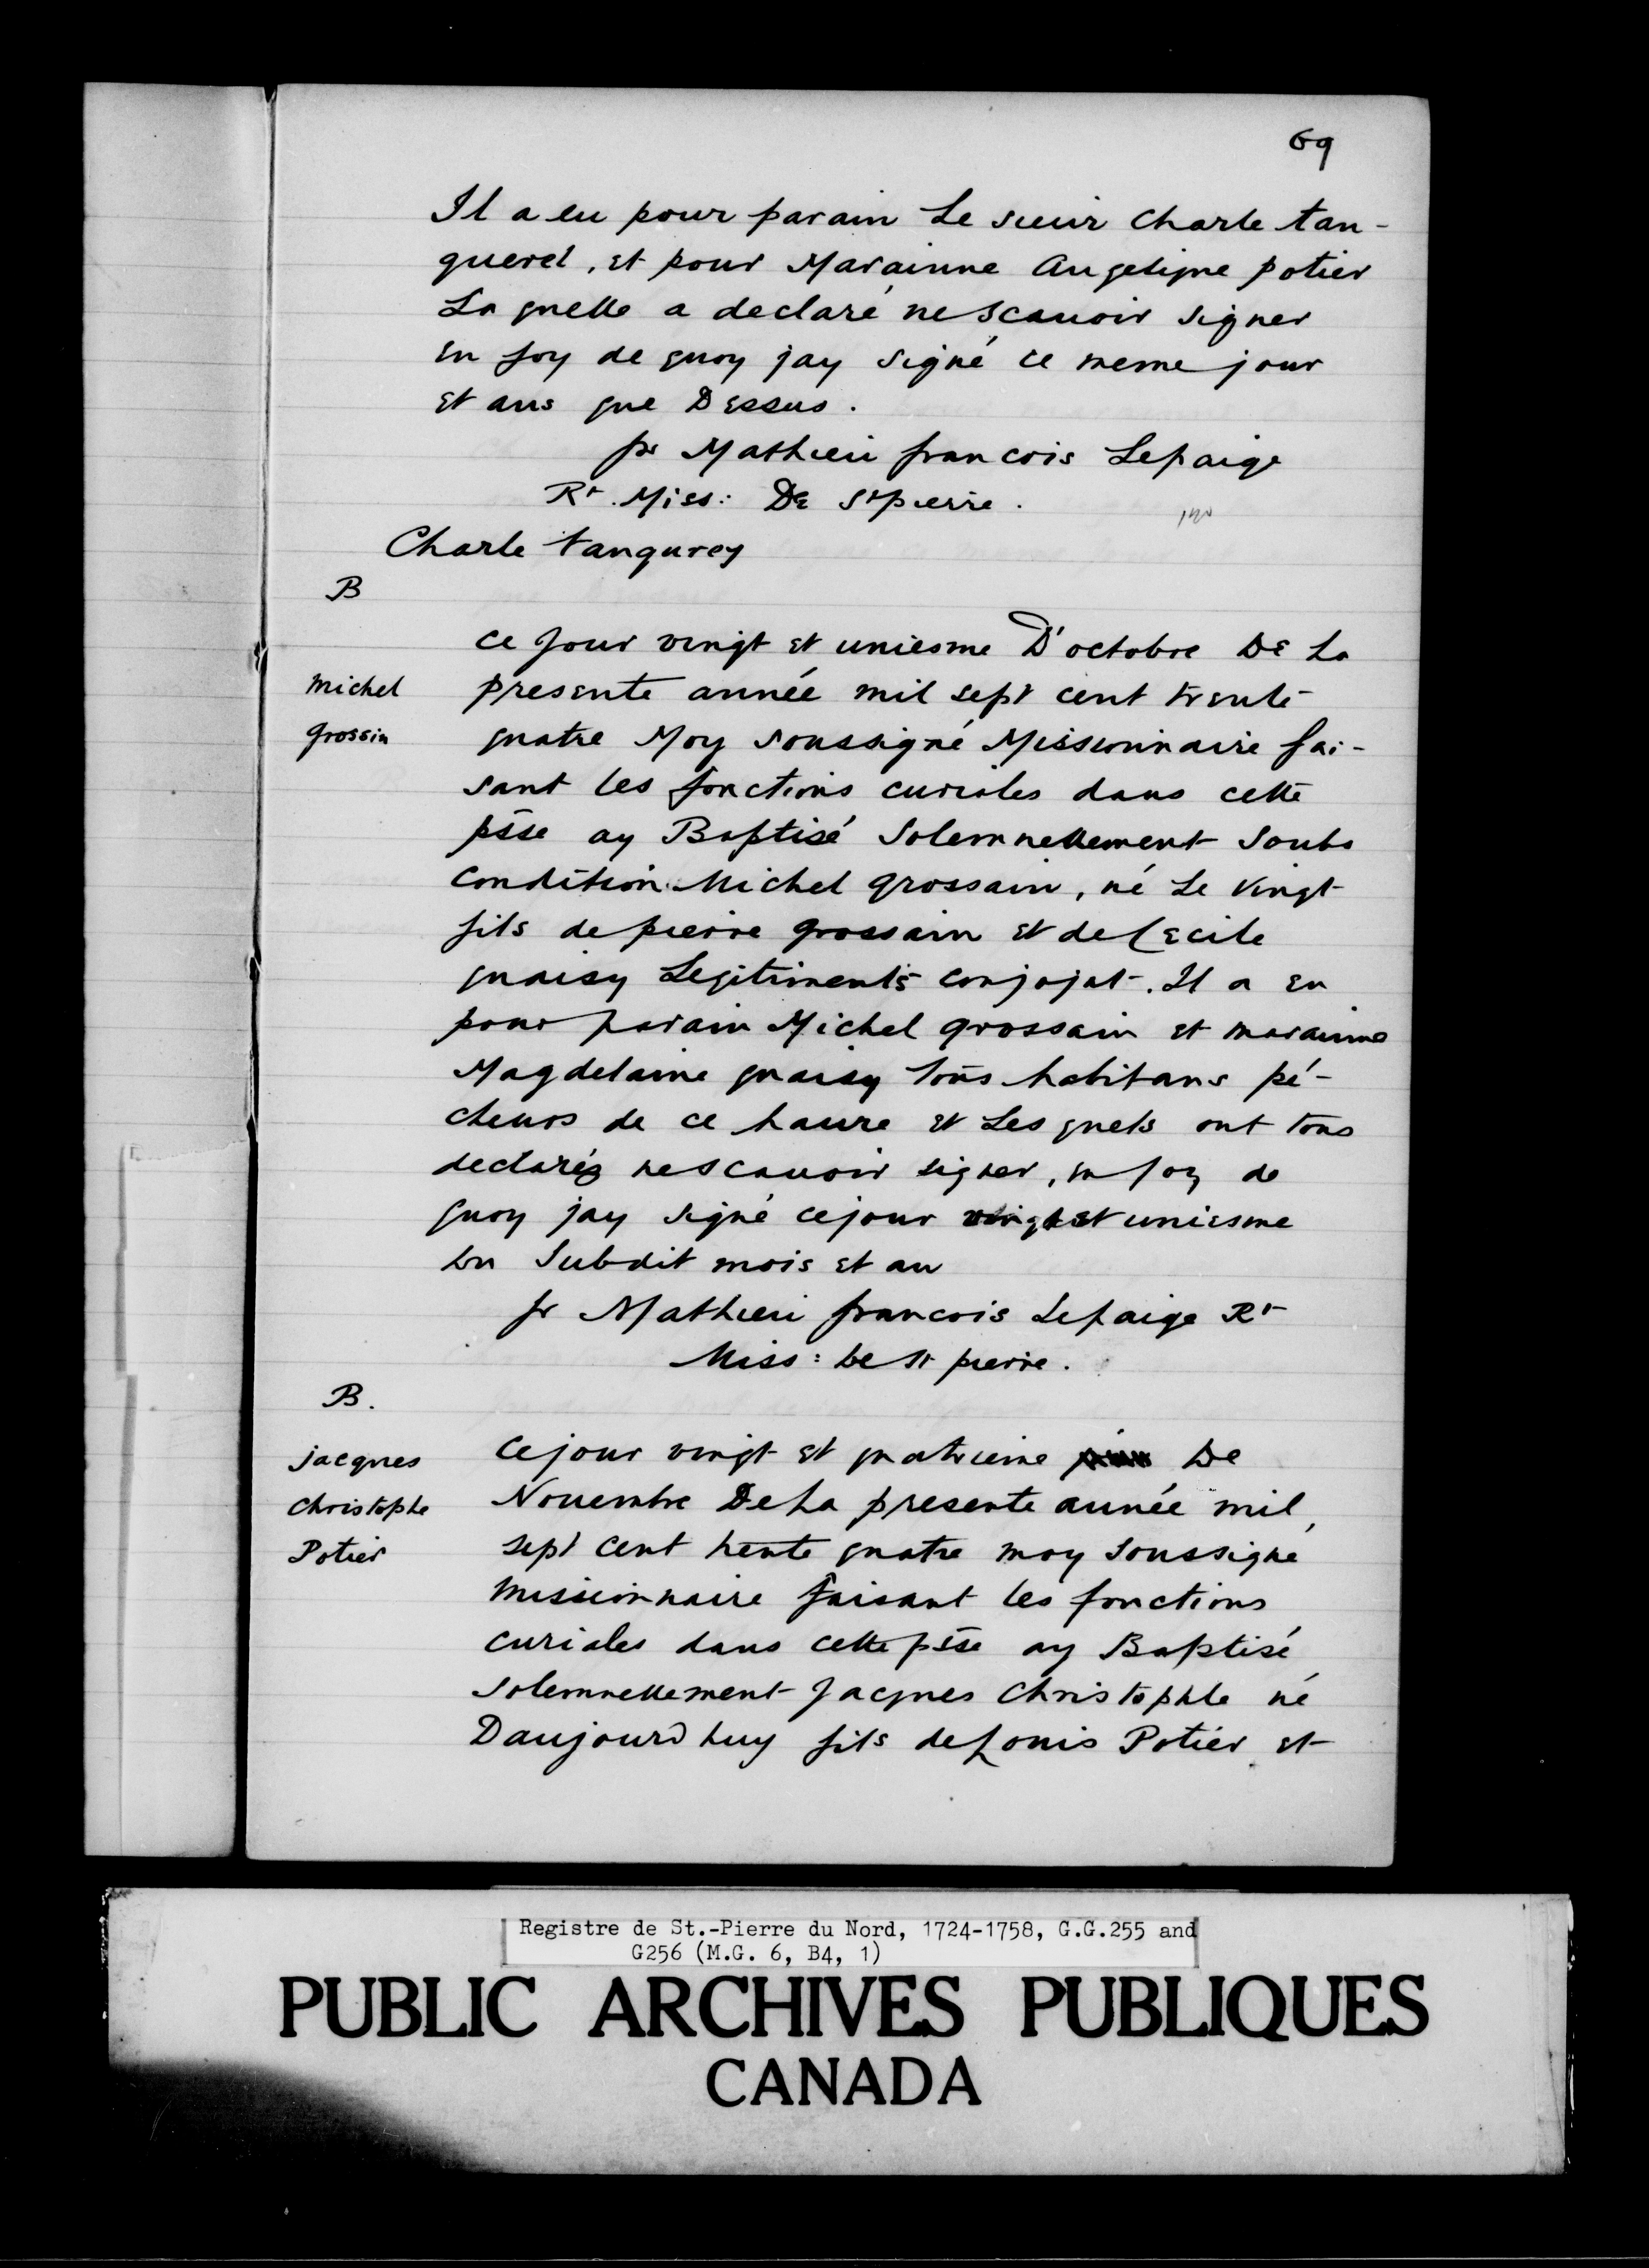 69
Il a eu pour parain Le sieur Charle tan-
querel, et pour Marainne Angelique potier
La quelle a declaré ne scauoir signer
en foy de quoy jay signé ce meme jour
et ans que Dessus.
fr Mathieu francois Lepaige
Rt. Miss: De St pierre.
Charle tanqurey
B
ce jour vingt et uniesme D'octobre De La
michel presente année mil sept cent trente
grossin quatre Moy soussigné Missionnaire fai-
sant les fonctions curiales dans cette
psse ay Baptisé Solemnellement Soubs
condition Michel grossain, né Le vingt
fils de pierre grossain et de Cecile
quaisy Legitiments conjojnt. Il a eu
pour parain Michel grossain et marainne
Magdelaine quaisy tous habitans pé-
cheurs de ce haure et Les quels ont tous
declaréz ne scauoir signer, en foy de
quoy jay signé ce jour vingt et uniesme
Du Subdit mois et an
fr Mathieu francois Lepaige Rt
Miss: De St pierre.
B.
jacques ce jour vingt et quatrieme De
christophe Nouembre De La presente année mil
Potier sept cent trente quatre moy soussigné
missionnaire faisant les fonctions
curiales dans cette psse ay Baptisé
solemnellement Jacques christophle né
Daujourd huy fils de Louis Potier et
Registre de St.-Pierre du Nord, 1724-1758, G.G.255 and
G256 (M.G. 6, B4, 1)
PUBLIC ARCHIVES PUBLIQUES
CANADA